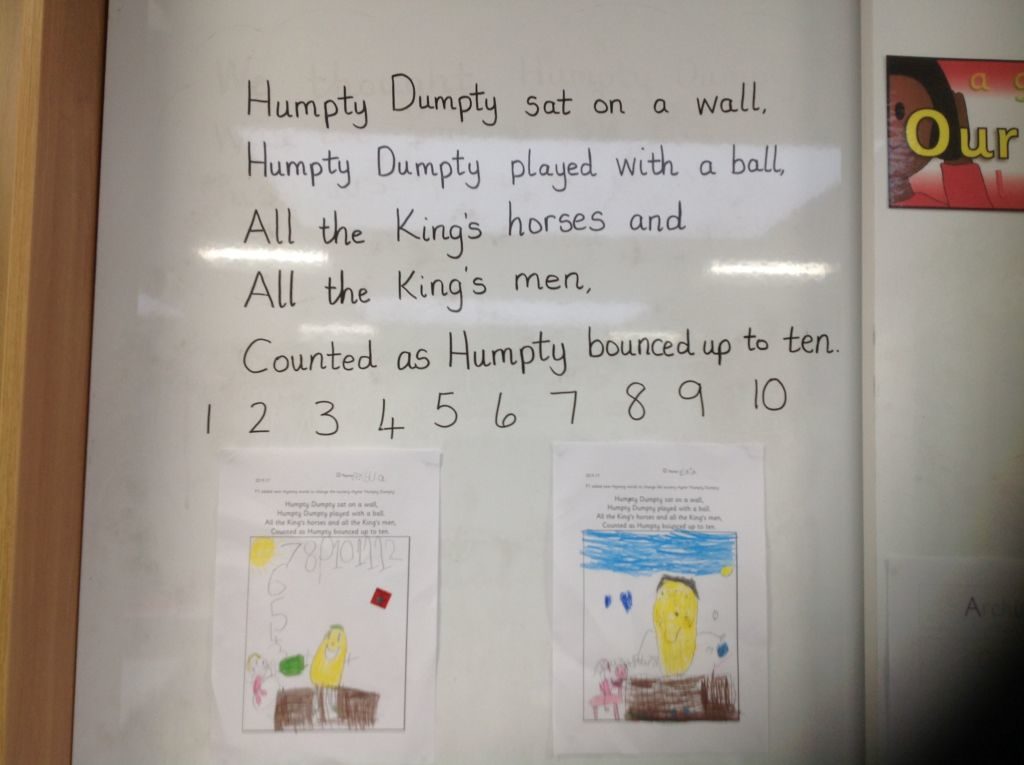 Humpty Dumpty sat on a wall,
Humpty Dumpty played with a ball,
All the King's horses and
All the King's men,
Counted as Humpty bounced up to ten.
1 2 3 4 5 6 7 8 9 10
Humpty Dumpty sat on a wall,
Humpty Dumpty played with a ball.
All the King's horses and all the King's men,
Counted as Humpty bounced up to ten.
Humpty Dumpty sat on a wall,
Humpty Dumpty played with a ball.
All the King's horses and all the King's men,
Counted as Humpty bounced up to ten.
a g
Our